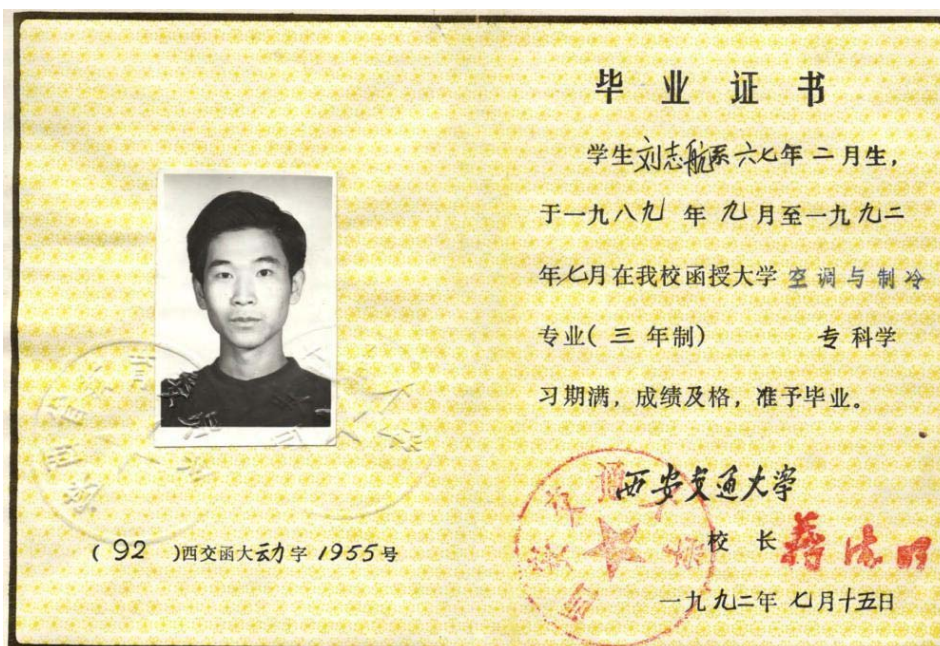 毕业证书
学生刘志航系六七年二月生，
于一九八九年九月至一九九二
年七月在我校函授大学空调与制冷
专业(三年制) 专科学
习期满，成绩及格，准予毕业。
西安交通大学
校长蒋德明
一九九二年七月十五日
(92)西交函大动字1955号